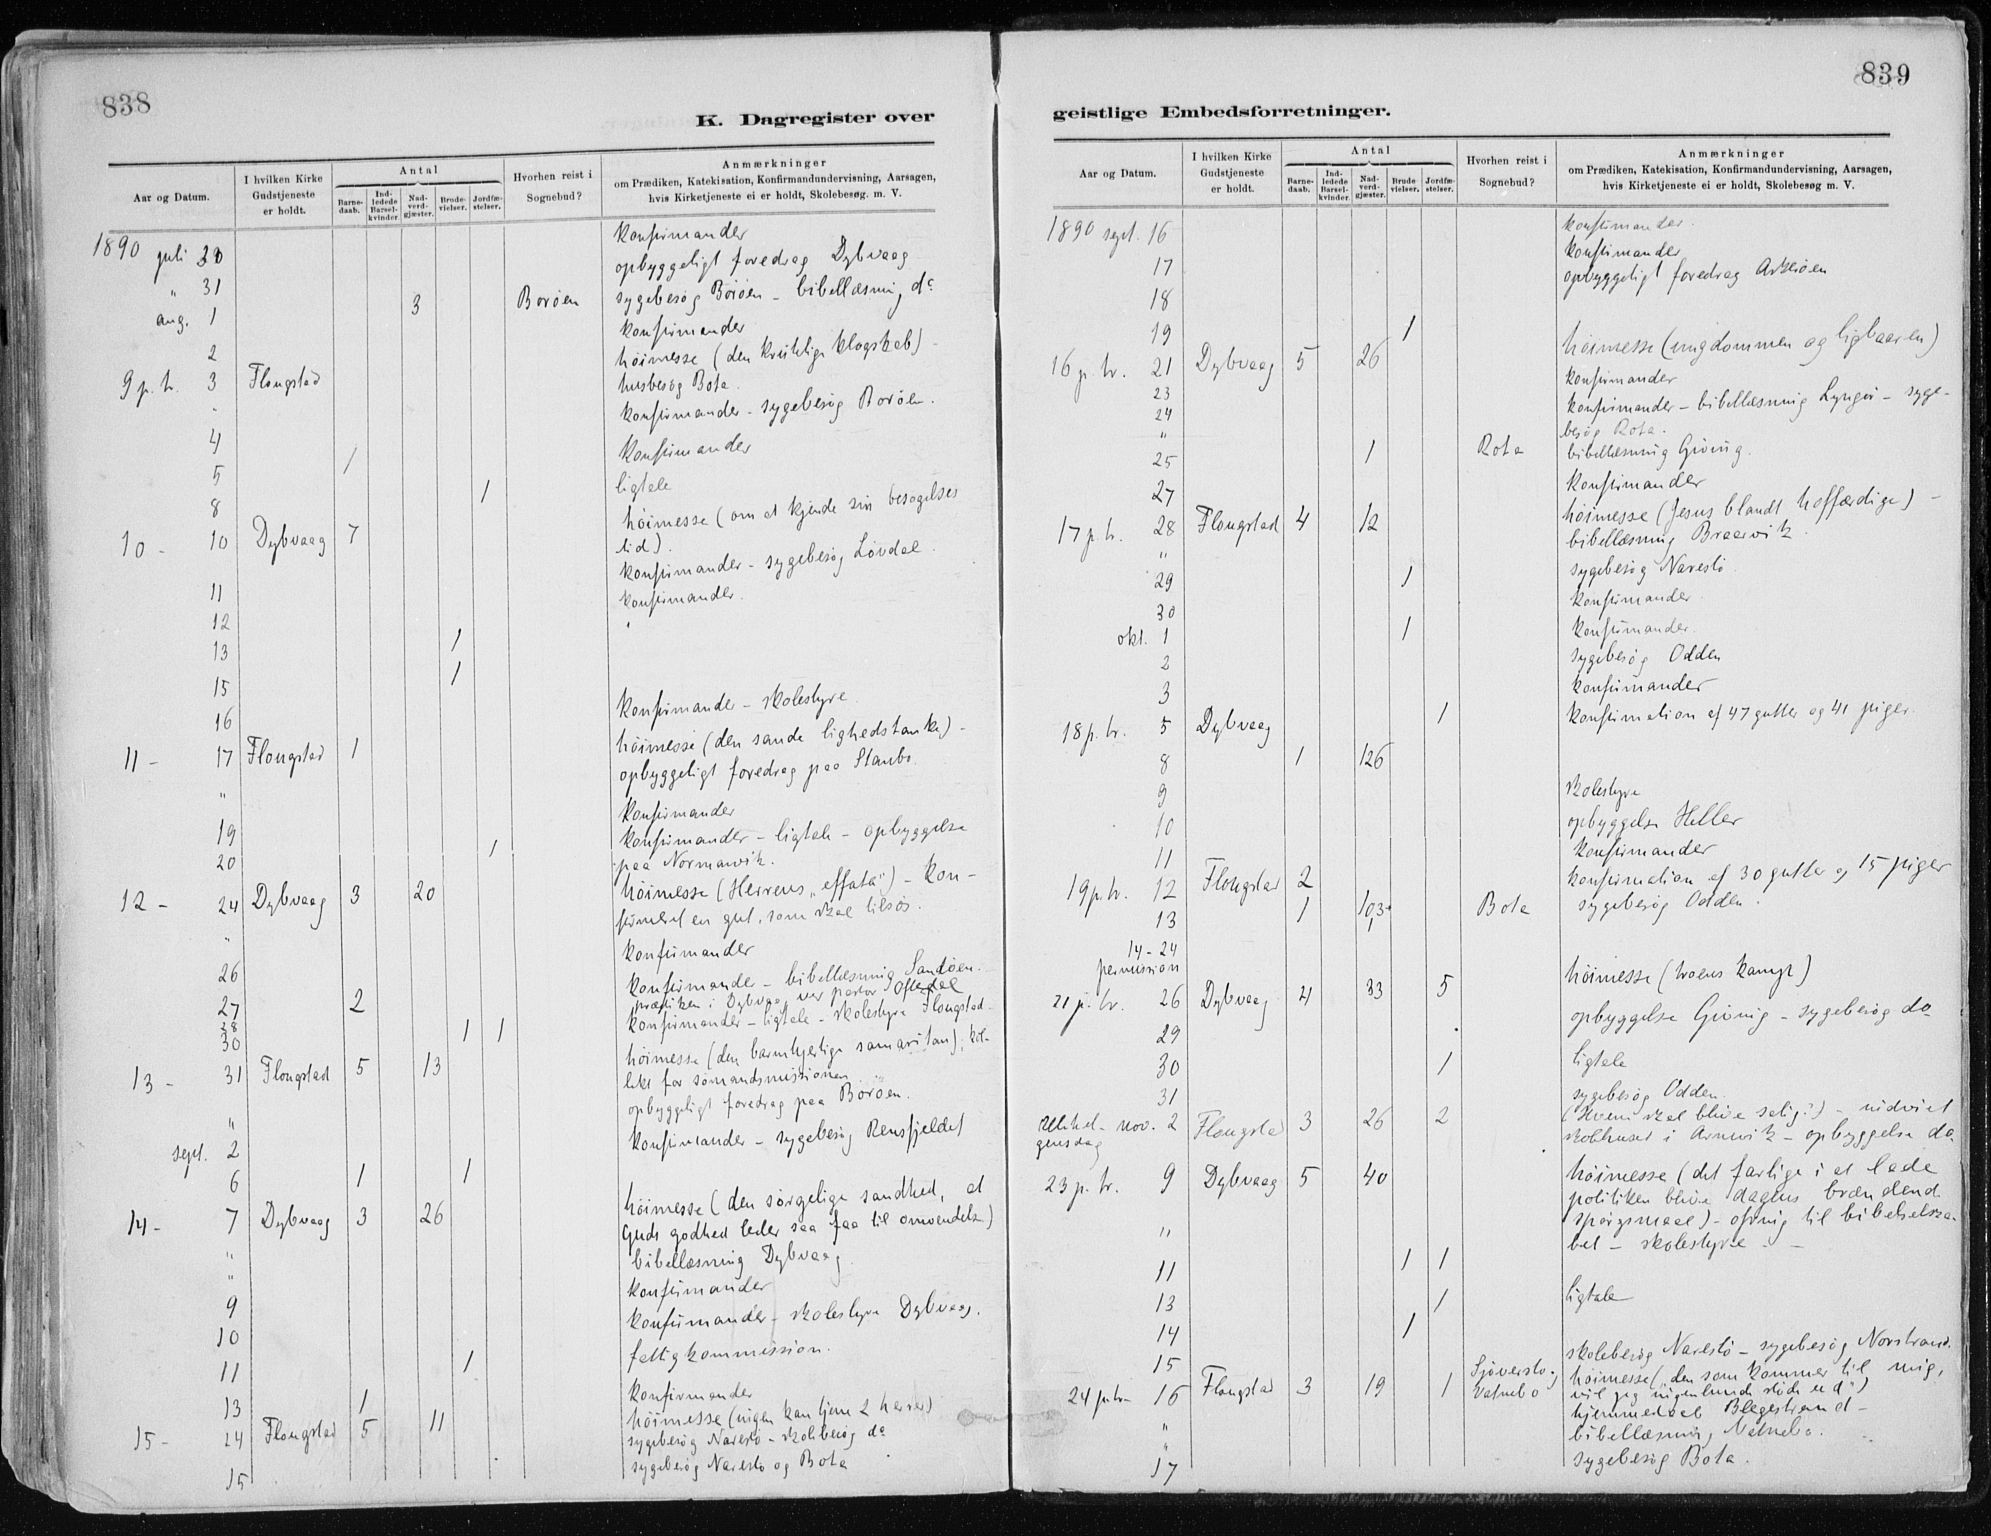 838
K. Dagregister over
Aar og Datum.
I hvilken Kirke Gudstjeneste er holdt.
Antal
Barnedaab.
Indledede Barselkvinder.
Nadverdgjæster.
Brudevielser.
Jordfæstelser.
Hvorhen reist i Sognebud?
Anmærkninger
om Prædiken, Katekisation, Konfirmandundervisning, Aarsagen,
hvis Kirketjeneste ei er holdt, Skolebesøg m. V.
konfirmander
1890 juli 30 opbyggeligt foredrag Dybvaag
" 31 3 Borøen sygebesøg Borøen - bibellæsning do
aug. 1 konfirmander
2 høimesse (den kristelige klogskab) -
9 p. tr. 3 Flougstad husbesøg Bota.
" konfirmander - sygebesøg Borøen.
4 konfirmander
5 1 ligtale
8 1 høimesse (om at kjende sin besøgelses
10 - 10 Dybvaag 7 tid).
konfirmander - sygebesøg Løvdal.
11 konfirmander.
12 "
13 1
15 1
konfirmander - skolestyre.
16 høimesse (den sande lighedstanke) -
11 - 17 Flougstad 1 opbyggeligt foredrag paa Staubo.
" konfirmander
19 konfirmander - ligtale - opbyggelse
20 1 paa Normanvik.
12 - 24 Dybvaag 3 20 høimesse (Herrens "effata") - kon-
firmeret en gut, som skal tilsøs.
" konfirmander
26 konfirmander - bibellæsning Sandøen.
27 2 prædiken i Dybvaag ver pastor Oftedal
28 konfirmander - ligtale - skolestyre Flougstad.
30 1 1 høimesse (den barmhjertige samaritan); kol-
13 - 31 Flougstad 5 13 lekt for sømandsmissionen
opbyggeligt foredrag paa Borøen.
" konfirmander - sygebesøg Rensfjeldet
sept. 2
6 1 1 høimesse (den sørgelige sandhed, at
14 - 7 Dybvaag 3 26 Guds godhed leder saa faa til omvendelse)
" bibellæsning Dybvaag
" konfirmander
9 konfirmander - skolestyre Dybvaag.
10 fattigkommission.
11 1
13 1 konfirmander
høimesse (ingen kan tjene 2 herrer)
15 - 14 Flougstad 5 11 sygebesøg Narestø - skolebesøg do
15 sygebesøg Narestø og Bota
839
geistlige Embedsforretninger.
Aar og Datum.
I hvilken Kirke Gudstjeneste er holdt.
Antal
Barnedaab.
Indledede Barselkvinder.
Nadverdgjæster.
Brudevielser.
Jordfæstelser.
Hvorhen reist i Sognebud?
Anmærkninger
om Prædiken, Katekisation, Konfirmandundervisning, Aarsagen,
hvis Kirketjeneste ei er holdt, Skolebesøg m. V.
1890 sept. 16 konfirmander.
17 konfirmander
opbyggeligt foredrag Askerøen
18
19 1
16 p. tr. 21 Dybvaag 5 26 høimesse (ungdommen og ligbaaren)
23 konfirmander
24 konfirmander - bibellæsning Lyngør - syge-
" besøg Rota.
25 1 Rota bibellæsning Gjøvig.
27 konfirmander
17 p. tr. 28 Flougstad 4 12 høimesse (Jesus blandt hoffærdige) -
" bibellæsning Braarvik.
29 1 sygebesøg Narestø.
30 1 konfirmander.
okt. 1 1 konfirmander.
2 sygebesøg Odden
3 konfirmander
18 p. tr. 5 Dybvaag 1 konfirmation af 47 gutter og 41 piger.
8 1 126
9 skolestyre
10 opbyggelse Heller
11 konfirmander
19 p. tr. 12 Flougstad 2 konfirmation af 30 gutter og 15 piger
13 1 103 1 Bota sygebesøg Odden.
14-24
permission
21 p. tr. 26 Dybvaag 4 33 5 høimesse (troens kamp)
29 opbyggelse Gjøvig - sygebesøg do
30 1 ligtale
31 sygebesøg Odden.
Allehel- nov. 2 Flougstad 3 26 2 (Hvem skal blive salig?) - indviet
gensdag skolehuset i Arnevik - opbyggelse do.
23 p. tr. 9 Dybvaag 5 40 høimesse (det farlige i at lade
politiken blive dagens brændende
spørgsmaal) - ofring til bibelselska-
" bet - skolestyre -
11 1 1
13 1 ligtale
14 1
15 skolebesøg Narestø - sygebesøg Norstrand.
24 p. tr. 16 Flougstad 3 19 1 Sjøverstø, Vatnebo høimesse ("den som kommer til mig,
vil jeg ingenlunde støde ud")
hjemmedaab Blegestrand -
" bibellæsning Vatnebo.
17 sygebesøg Bota.